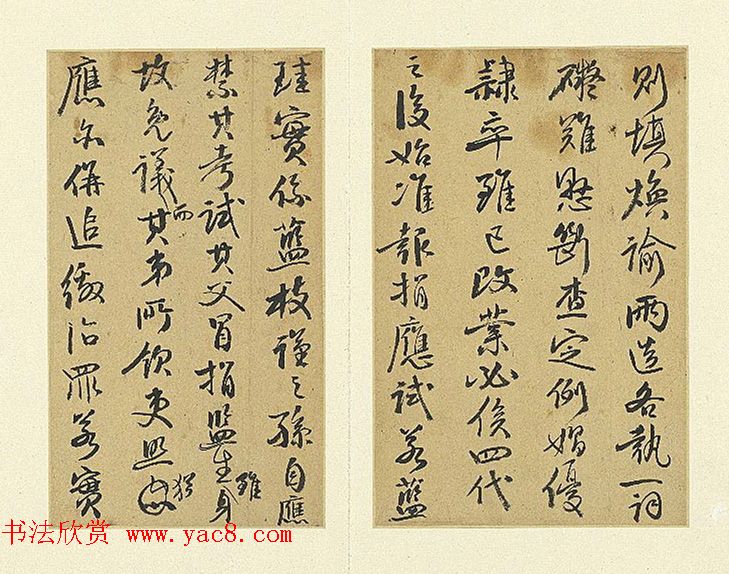 則填煥諭兩造各執一詞
礙難懸斷查定例娼優
隸卒雖已改業必俟四代
之後始准報捐應試若藍
珪實係藍枝謹之孫自應
禁其考試其父冒捐監生雖身
故免議而其弟所領吏照猶
應併追繳治罪若實
书法欣赏 www.yac8.com